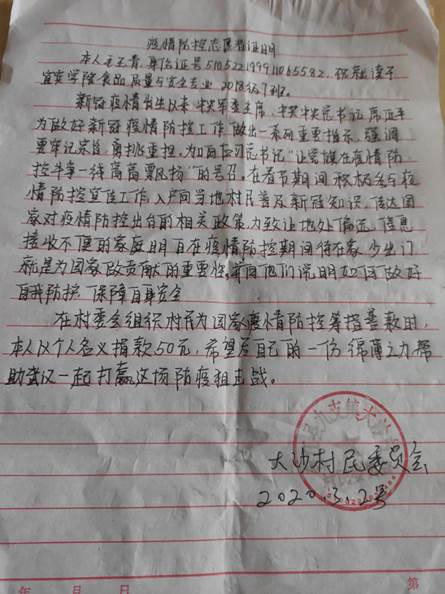 疫情防控志愿者证明
本人毛玉青，身份证号510522199911065582，现就读于
宜宾学院食品质量与安全专业2018级7班。
新冠疫情发生以来，中央军委主席、中共中央总书记习近平
为做好新冠疫情防控工作，做出一系列重要指示，强调
要牢记宗旨，勇挑重担，为响应习总书记“让党旗在疫情防
控斗争一线高高飘扬”的号召，在春节期间积极参与疫
情防控宣传工作，入户向当地村民普及新冠知识，传达国
家对疫情防控出台的相关政策，力致让地处偏远，信息
接收不便的家庭明白在疫情防控期间待在家，少出门
就是为国家做贡献的重要性，并向他们说明如何做好
自我防护，保障自身安全
在村委会组织村民为国家疫情防控筹措善款时，
本人以个人名义捐款50元，希望尽自己的一份绵薄之力帮
助武汉一起打赢这场防疫阻击战。
大沙村民委员会
2020.3.2号
年 月 日 第